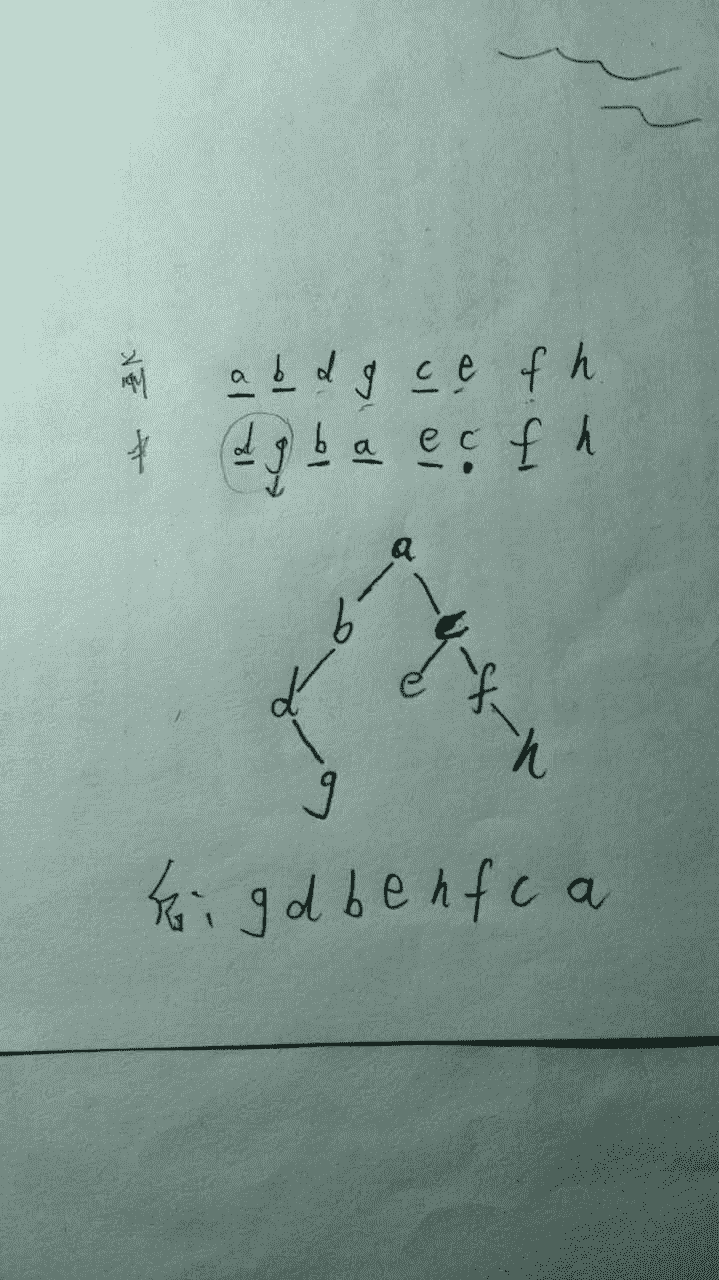 前 a b d g c e f h
中 d g b a e c f h
a
b c
d e f
g h
后: g d b e h f c a